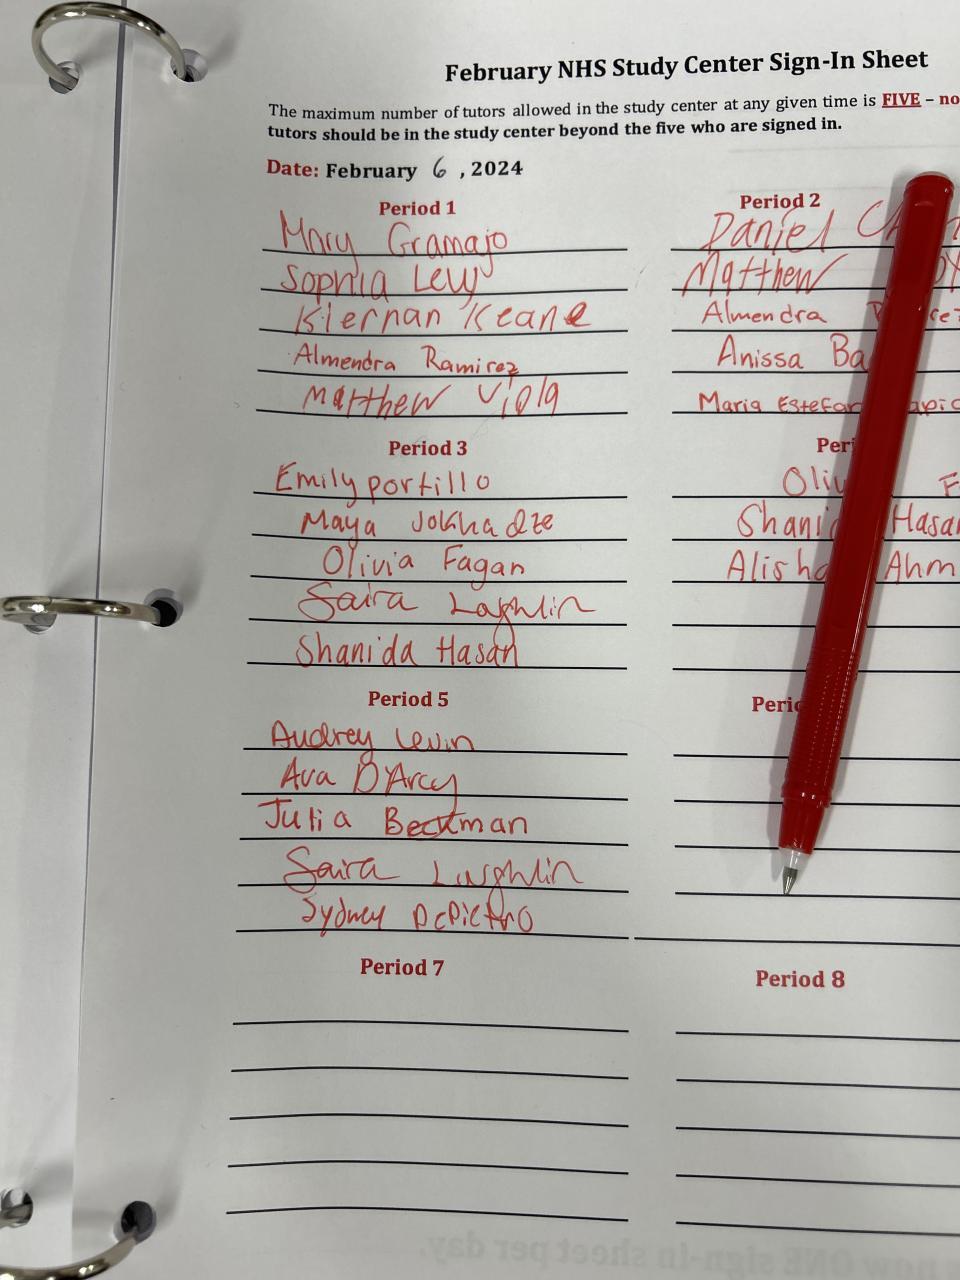 February NHS Study Center Sign-In Sheet
The maximum number of tutors allowed in the study center at any given time is FIVE – no
tutors should be in the study center beyond the five who are signed in.
Date: February 6, 2024
Period 1
Mary Gramajo
Sophia Levy
Kiernan Keane
Almendra Ramirez
Matthew Viola
Period 2
Daniel
Matthew
Almendra
Anissa Ba
Maria Estefan
Period 3
Emily portillo
Maya Jokhadze
Olivia Fagan
Saira Laghlin
Shanida Hasan
Peri
Oliv F
Shani Hasan
Alisha Ahm
Period 5
Audrey Levin
Ava D'Arcy
Julia Beckman
Saira Laghlin
Sydney DePietro
Perio
Period 7
Period 8